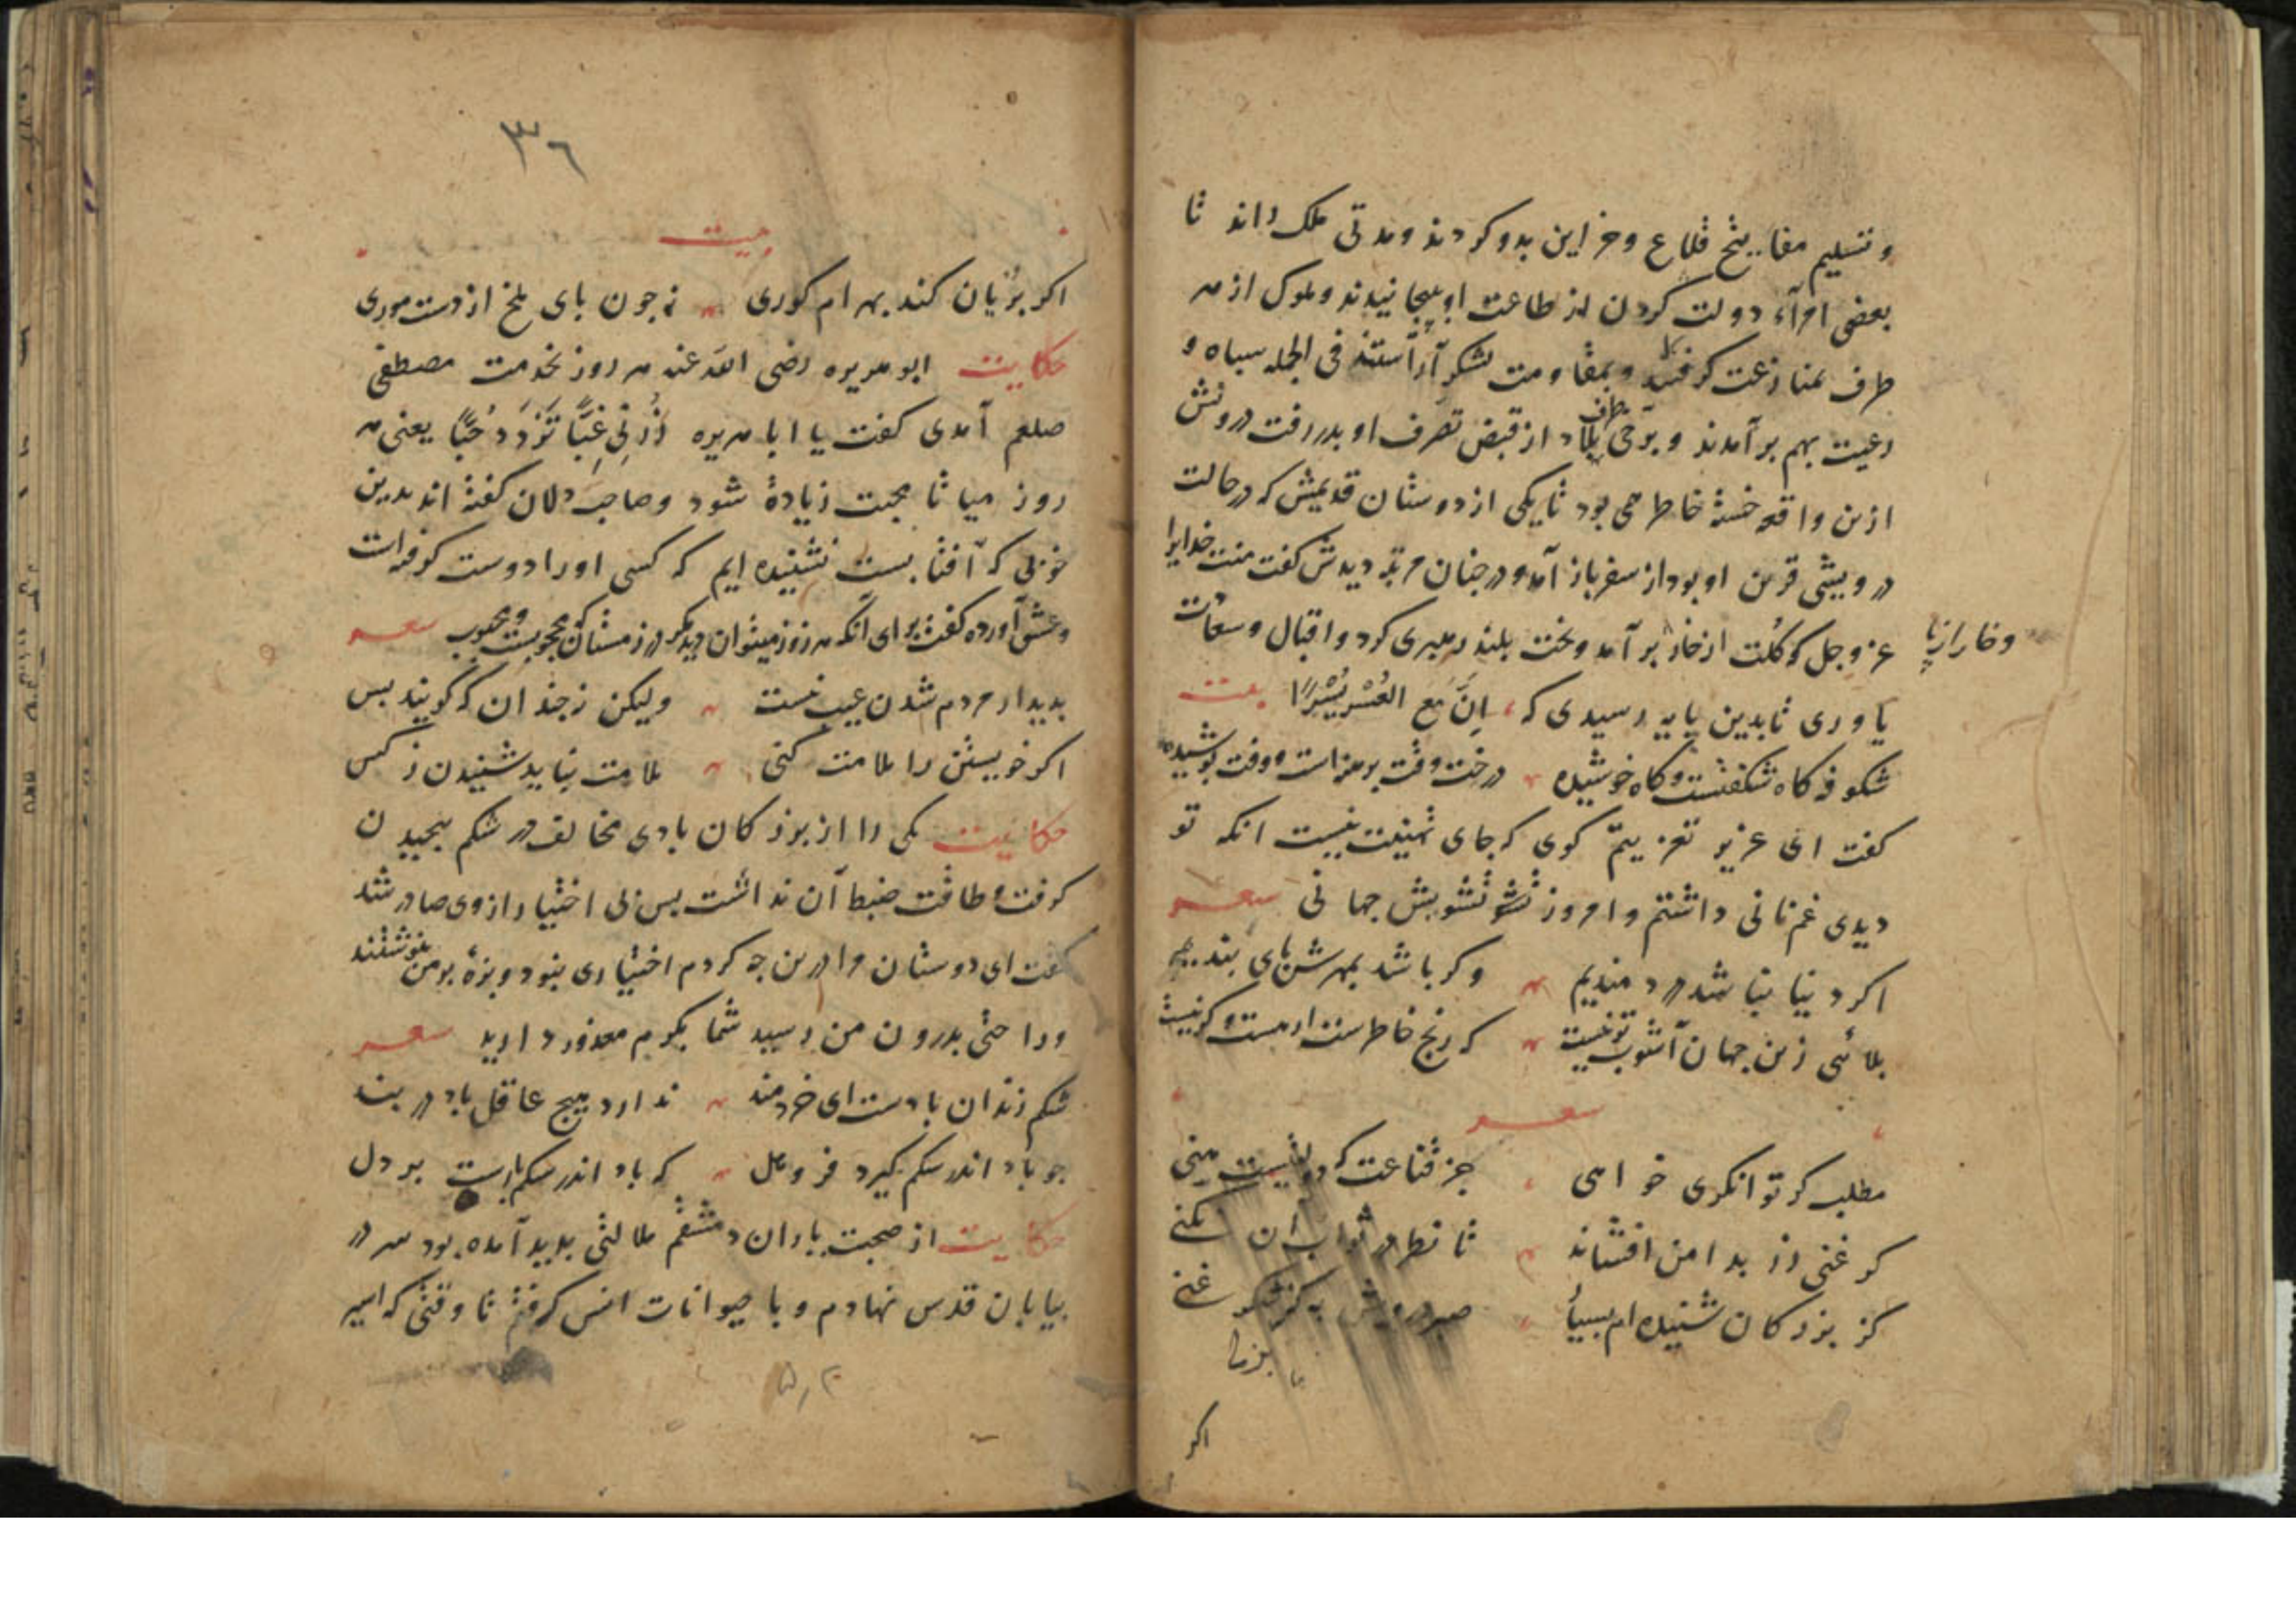 وتسليم مفاتيح قلاع وخزاين بدو كردند ومدتى ملك راند تا
بعضى امرآء دولت كردن از طاعت او بيجانيدند وملوك از هر
طرف بمنازعت كرفتند وبمقاومت لشكر آراستند فى الجمله سپاه و
رعيت بهم برآمدند وبرخى طرف بلاد از قبض تصرف او بدر رفت درويش
ازين واقعه خسته خاطر مى بود تا يكى از دوستان قديمش كه در حالت
درويشى قرين او بود از سفر باز آمد ودر چنان مرتبه ديدش كفت منت خدايرا
عز وجل كه كلت از خار برآمد وبخت بلند رهبرى كرد واقبال وسعادت
وخار از پا
ياورى تا بدين پايه رسيدى كه إنّ مع العُسْرِ يُسْرًا بيت
شكوفه كاه شكفتست وكاه خوشيده درخت وقت برهنه است ووقت پوشيده
كفت اى عزيز تعزيتم كوى كه جاى تهنيت نيست انكه تو
ديدى غم نانى داشتم وامروز تشويش جهانى شعر
اكر دنيا نباشد دردمنديم وكر باشد بمهرش پاى بنديم
بلائى زين جهان آشوب تر نيست كه رنج خاطرست ار هست وكر نيست
شعر
مطلب كر توانكرى خواهى جز قناعت كه دولتيست هنى
كر غنى زر بدامن افشاند تا نظر در ثواب آن نكنى
كز بزركان شنيده ام بسيار صبر درويش به كه شكر غنى
بزل
اكر
٣٦
بيت
اكر بريان كند بهرام كورى نه چون پاى ملخ از دست مورى
حكايت ابو هريره رضى الله عنه هر روز بخدمت مصطفى
صلعم آمدى كفت يا ابا هريره زُرْنِى غِبًّا تَزْدَدْ حُبًّا يعنى هر
روز ميا تا محبت زياده شود وصاحب دلان كفته اند بدين
خوبى كه آفتابست نشنيده ايم كه كسى اورا دوست كرفته است
وعشق آورده كفت براى آنكه هر روز ميتوان ديد مكر در زمستان كه محجوبست ومحبوب شعر
بديدار مردم شدن عيب نيست وليكن نه چندان كه كويند بس
اكر خويشتن را ملامت كنى ملامت نبايد شنيدن ز كس
حكايت يكى را از بزركان بادى مخالف در شكم پيچيدن
كرفت وطاقت ضبط آن نداشت پس بى اختيار ازوى صادر شد
كفت اى دوستان مرا درين چه كردم اختيارى نبود وبزهٔ بر من ننوشتند
وراحتى بدرون من رسيد شما بكرم معذور داريد شعر
شكم زندان بادست اى خردمند ندارد هيچ عاقل باد در بند
چو باد اندر شكم كيرد فرو هل كه باد اندر شكم بارست بر دل
حكايت از صحبت ياران دمشقم ملالتى پديد آمده بود سر در
بيابان قدس نهادم وبا حيوانات انس كرفتم تا وقتى كه اسير